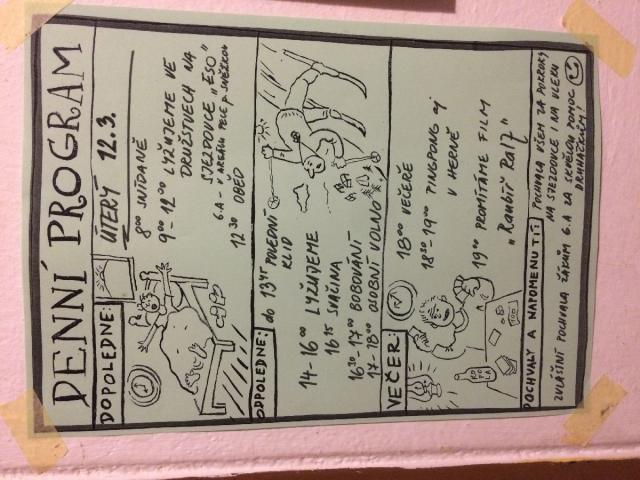 DENNÍ PROGRAM
DOPOLEDNE:
ÚTERÝ 12.3.
8⁰⁰ SNÍDANĚ
9⁰⁰-12⁰⁰ LYŽUJEME VE
DRUŽSTVECH NA
SJEZDOVCE "ESO"
6.A - V AREÁLU PECE P. SNĚŽKOU
12³⁰ OBĚD
ODPOLEDNE:
do 13⁴⁵ POLEDNÍ
KLID
14-16⁰⁰ LYŽUJEME
16¹⁵ SVAČINA
16³⁰-17⁰⁰ BOBOVÁNÍ
17-18⁰⁰ OSOBNÍ VOLNO
VEČER:
18⁰⁰ VEČEŘE
18³⁰-19⁰⁰ PINKPONG aj
V HERNĚ
19⁰⁰ PROMÍTÁME FILM
"Raubíř Ralf"
KO
FO
LA
POCHVALY A NAPOMENUTÍ:
POCHVALA VŠEM ZA POKROKY
NA SJEZDOVCE I NA VLEKU
ZVLÁŠTNÍ POCHVALA ŽÁKŮM 6.A ZA SKVĚLOU POMOC
DRUHÁČKŮM!